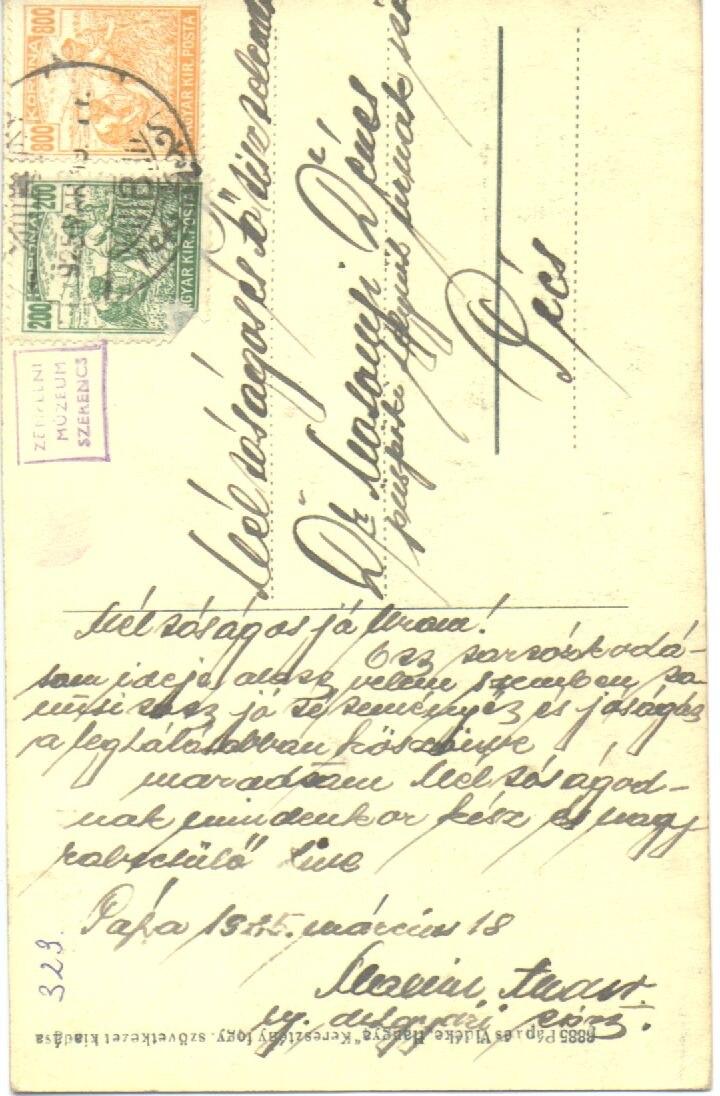 800 KORONA 800
MAGYAR KIR. POSTA
200 KORONA 200
MAGYAR KIR. POSTA
925 MAR
ZEMPLÉNI
MÚZEUM
SZERENCS
Méltóságos és Fő
Dr. Mosonyi Dénes
püspöki urnak
Pécs
Méltóságos jó Uram!
Ott tartózkodá-
som ideje alatt velem szemben ta-
nusitott jó téteményét és jóságát
a leghálásabban köszönve
maradtam Méltóságod-
nak mindenkor kész és nagy
híve
Pápa 1925. március 18
323.
6885 Pápa és Vidéke „Hangya" Keresztény fogy. szövetkezet kiadása